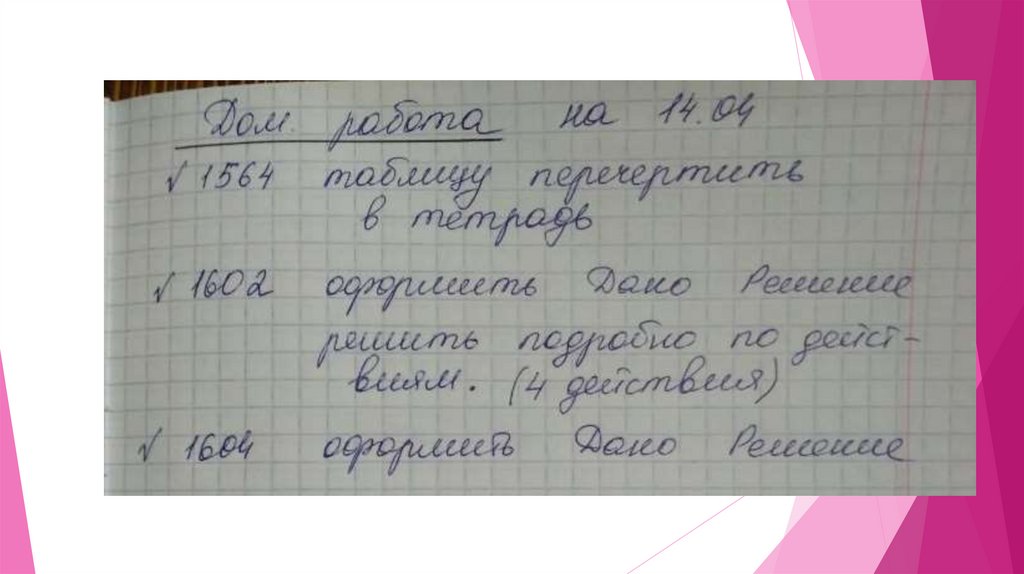 Дом. работа на 14.04
√ 1564 таблицу перечертить
в тетрадь
√ 1602 оформить Дано Решение
решить подробно по дейст-
виям. (4 действия)
√ 1604 оформить Дано Решение